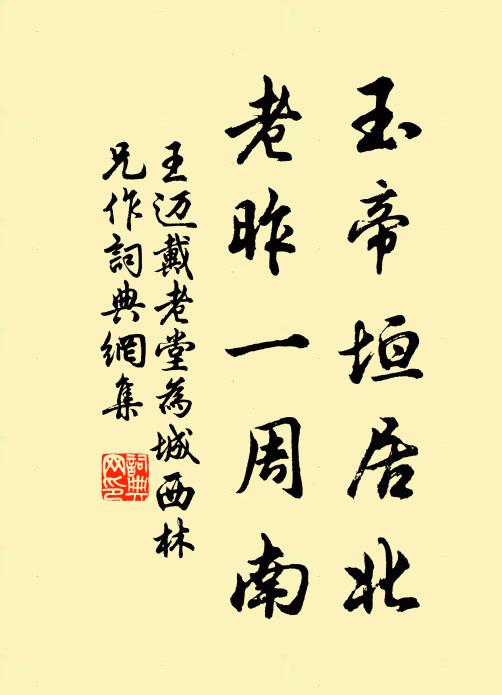 玉帝垣居北
老昨一周南
王迈戴老堂為城西林
兄作詞典網集
詞典网印